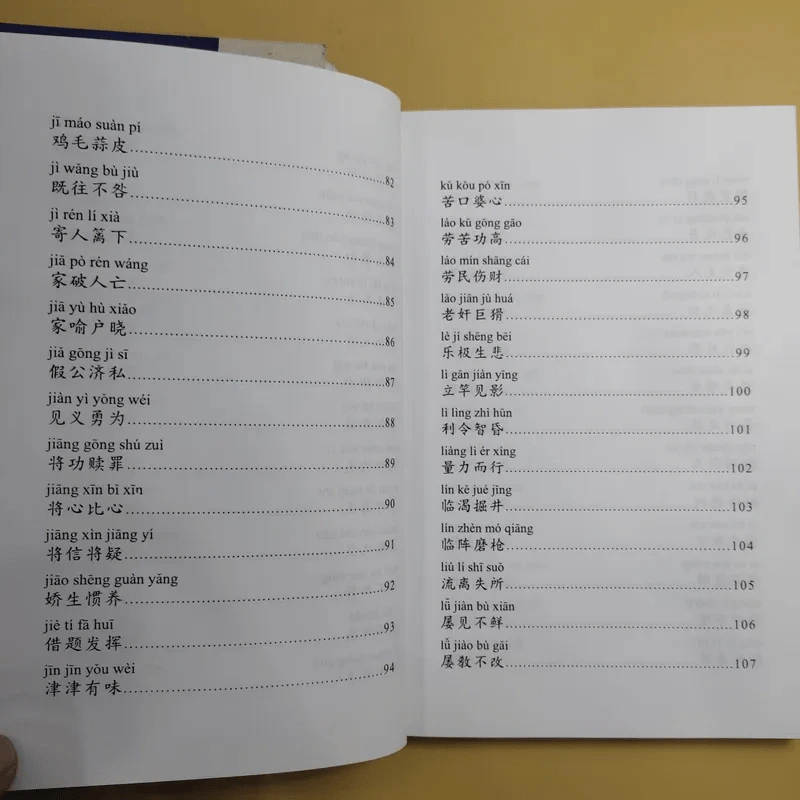 jī máo suàn pí
鸡毛蒜皮 82
jì wǎng bù jiù
既往不咎 83
jì rén lí xià
寄人篱下 84
jiā pò rén wáng
家破人亡 85
jiā yù hù xiǎo
家喻户晓 86
jiǎ gōng jì sī
假公济私 87
jiàn yì yǒng wéi
见义勇为 88
jiāng gōng shú zuì
将功赎罪 89
jiāng xīn bǐ xīn
将心比心 90
jiāng xìn jiāng yí
将信将疑 91
jiāo shēng guàn yǎng
娇生惯养 92
jiè tí fā huī
借题发挥 93
jīn jīn yǒu wèi
津津有味 94
kǔ kǒu pó xīn
苦口婆心 95
láo kǔ gōng gāo
劳苦功高 96
láo mín shāng cái
劳民伤财 97
lǎo jiān jù huá
老奸巨猾 98
lè jí shēng bēi
乐极生悲 99
lì gān jiàn yǐng
立竿见影 100
lì lìng zhì hūn
利令智昏 101
liàng lì ér xíng
量力而行 102
lín kě jué jǐng
临渴掘井 103
lín zhèn mó qiāng
临阵磨枪 104
liú lí shī suǒ
流离失所 105
lǚ jiàn bù xiān
屡见不鲜 106
lǚ jiào bù gǎi
屡教不改 107